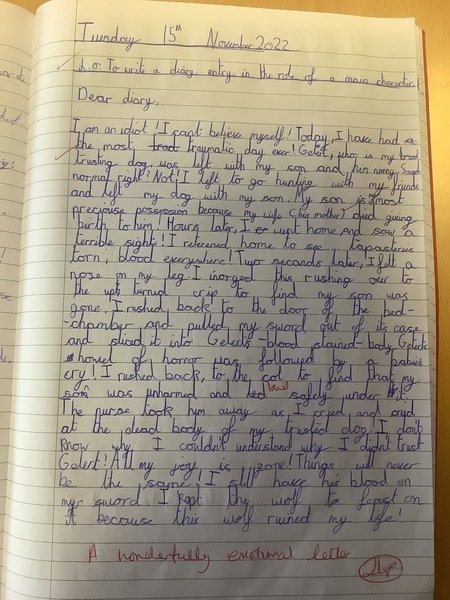 Tuesday 15th November 2022
L.O: To write a diary entry in the role of a main character.
Dear diary,
I am an idiot! I can't believe myself! Today, I have had
the most traumatic day ever! Gelert, who is my
trusting dog, was left with my son and his nanny. Sounds
normal right? Not! I left to go hunting with my friends
and left my dog with my son. My son is my most
preciouse possession because my wife (his mother) died giving
birth to him! Hours later, I went home and saw a
terrible sight! I returned home to see... tapasteries
torn, blood everywhere! Two seconds later, I felt a
nose on my leg. I inorged this rushing over to
the up turned crip to find my son was
gone. I rushed back to the door of the bed-
-chamber and pulled my sword out of its case
and sliced it into Gelerts -blood stained- body. Gelerts
howel of horror was followed by a babies
cry! I rushed back, to the cot to find that my
son was unharmed and laid safely under it.
The nurse took him away as I cried and cried
at the dead body of my trusted dog! I dont
know why I couldn't understand why I didn't trust
Gelert! All my joy is gone! Things will never
be the same, I still have his blood on
my sword. I kept the wolf to feast on
it because this wolf ruined my life!
A wonderfully emotional